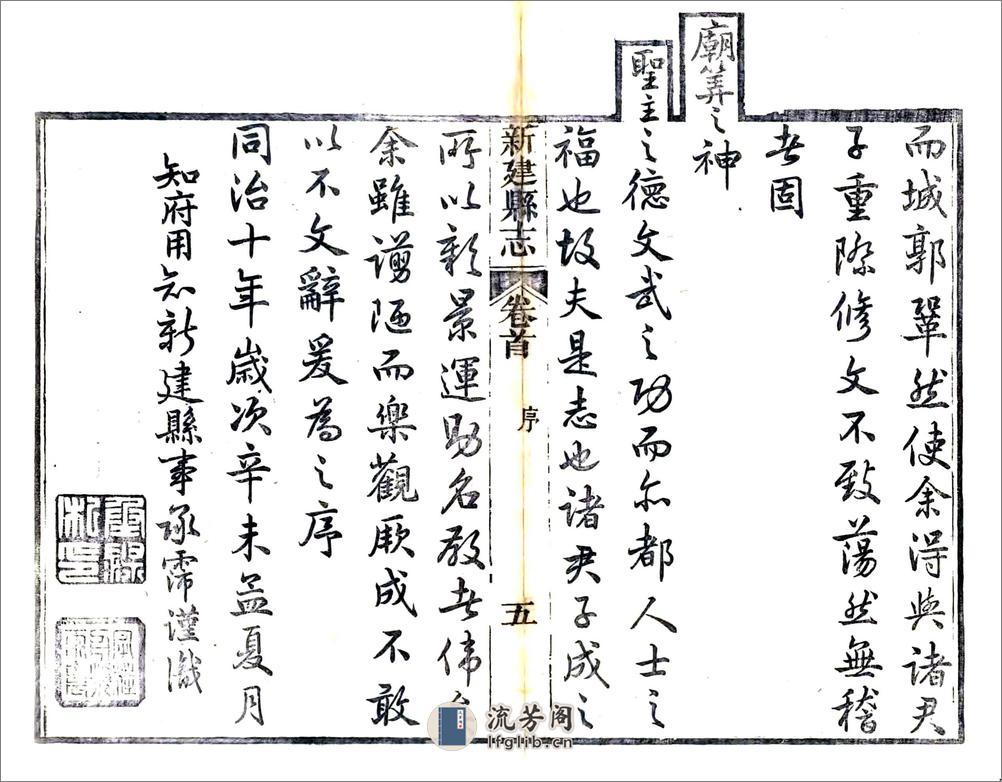 而城郭鞏然使余得與諸君
子重際修文不致蕩然無稽
者固
廟算之神
聖主之德文武之功而亦都人士之
福也故夫是志也諸君子成之
新建縣志
卷首
序
五
所以新景運助名教者偉矣
余雖謭陋而樂觀厥成不敢
以不文辭爰為之序
同治十年歲次辛未孟夏月
知府用知新建縣事承霈謹識
流芳阁
lfglib.cn